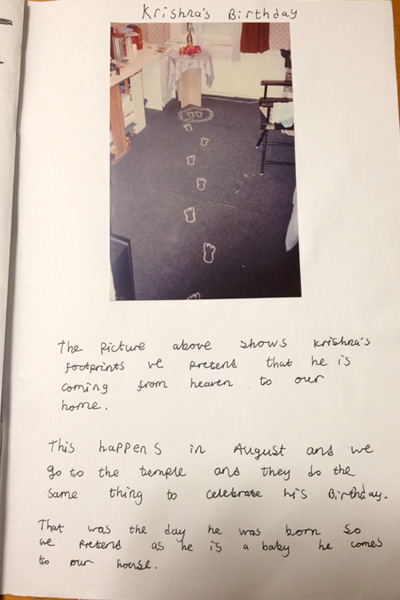 Krishna's Birthday
The picture above shows Krishna's
footprints we pretend that he is
coming from heaven to our
home.
This happens in August and we
go to the temple and they do the
same thing to celebrate his Birthday.
That was the day he was born so
we pretend as he is a baby he comes
to our house.